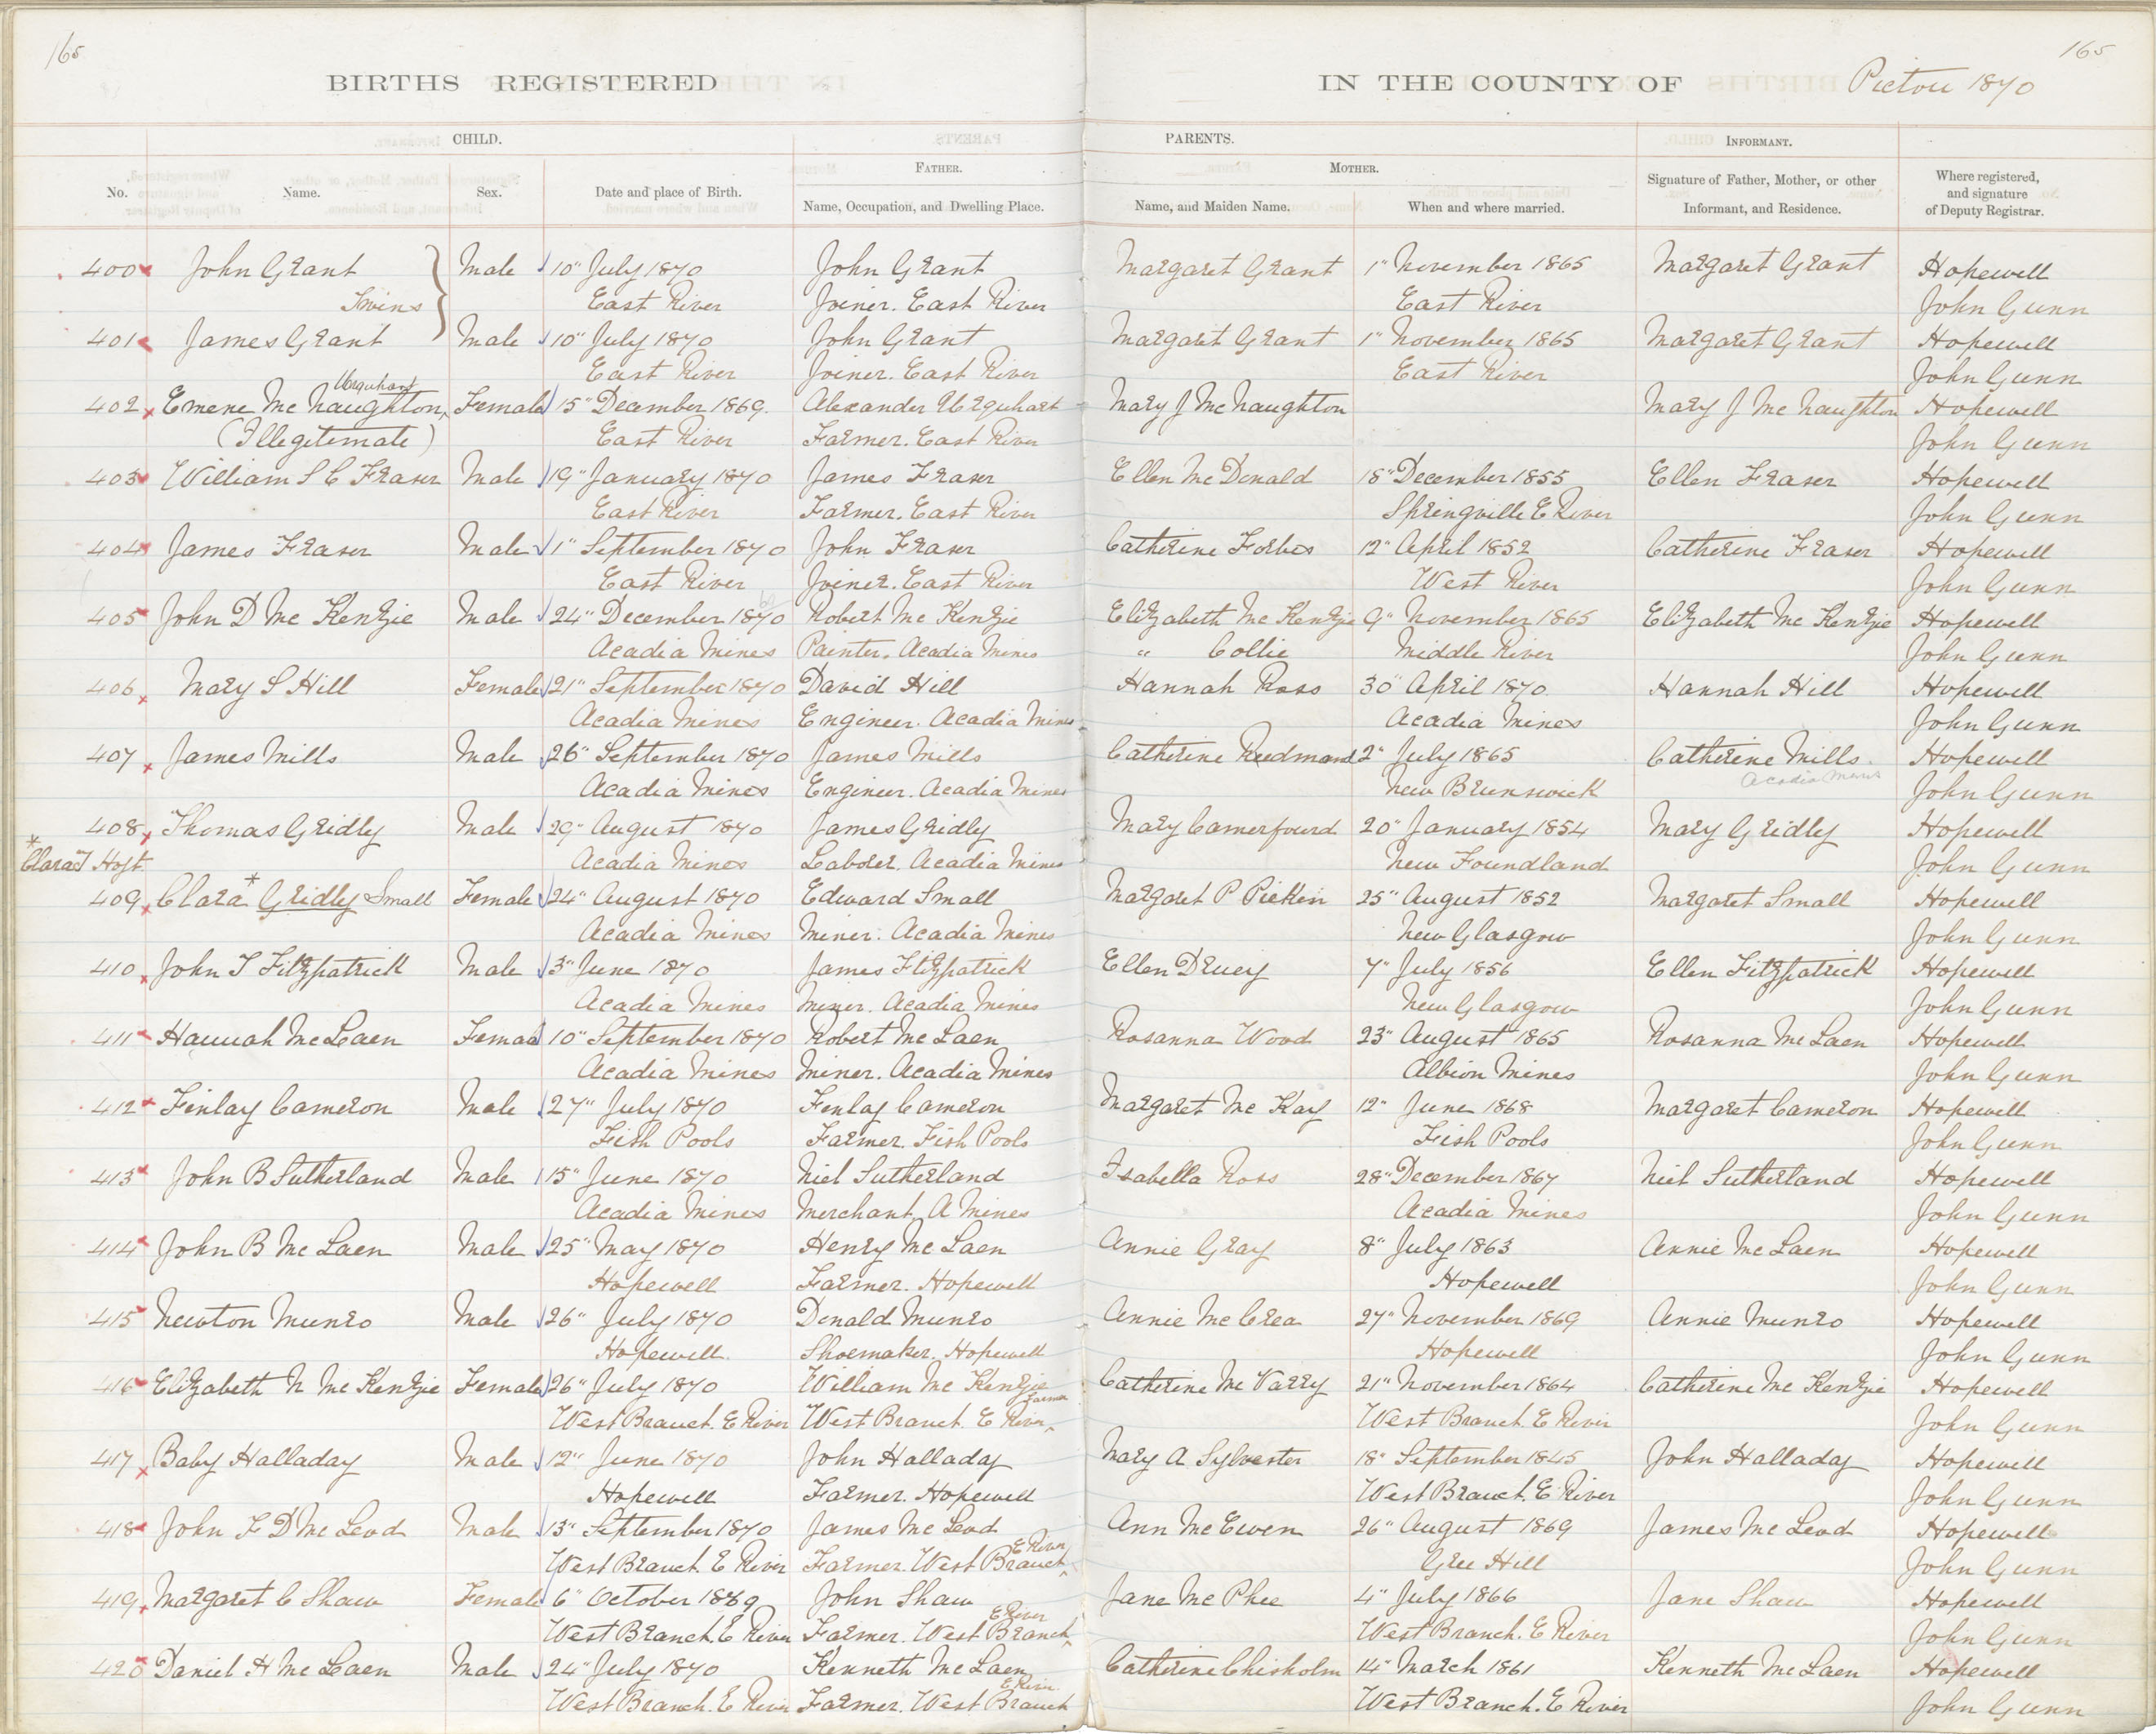 165
165
BIRTHS REGISTERED IN THE COUNTY OF Pictou 1870
CHILD. PARENTS. INFORMANT.
FATHER. MOTHER.
No. Name. Sex. Date and place of Birth. Name, Occupation, and Dwelling Place. Name, and Maiden Name. When and where married. Signature of Father, Mother, or other Informant, and Residence. Where registered, and signature of Deputy Registrar.
400 John Grant Male 10" July 1870 John Grant Margaret Grant 1" November 1865 Margaret Grant Hopewell
Twins East River Joiner. East River East River John Gunn
401 James Grant Male 10" July 1870 John Grant Margaret Grant 1" November 1865 Margaret Grant Hopewell
East River Joiner. East River East River John Gunn
Urquhart
402 Emene Mc Naughton Female 15" December 1869. Alexander Urquhart Mary J Mc Naughton Mary J Mc Naughton Hopewell
(Illegitimate) East River Farmer. East River John Gunn
403 William S C Fraser Male 19" January 1870 James Fraser Ellen Mc Donald 18" December 1855 Ellen Fraser Hopewell
East River Farmer. East River Springville E River John Gunn
404 James Fraser Male 1" September 1870 John Fraser Catherine Forbes 12" April 1852 Catherine Fraser Hopewell
East River Joiner. East River West River John Gunn
405 John D Mc Kenzie Male 24" December 1870 Robert Mc Kenzie Elizabeth Mc Kenzie 9" November 1865 Elizabeth Mc Kenzie Hopewell
Acadia Mines Painter. Acadia Mines " Collie Middle River John Gunn
406 Mary S Hill Female 21" September 1870 David Hill Hannah Ross 30" April 1870 Hannah Hill Hopewell
Acadia Mines Engineer. Acadia Mines Acadia Mines John Gunn
407 James Mills Male 26" September 1870 James Mills Catherine Reedmond 2" July 1865 Catherine Mills Hopewell
Acadia Mines Engineer. Acadia Mines New Brunswick Acadia Mines John Gunn
408 Thomas Gridly Male 29" August 1870 James Gridly Mary Camerfourd 20" January 1854 Mary Gridly Hopewell
* Clara T Hoft. Acadia Mines Laborer. Acadia Mines New Foundland John Gunn
409 Clara * Gridly Small Female 24" August 1870 Edward Small Margaret P Pickin 25" August 1852 Margaret Small Hopewell
Acadia Mines Miner. Acadia Mines New Glasgow John Gunn
410 John T Fitzpatrick Male 3" June 1870 James Fitzpatrick Ellen Druey 7" July 1856 Ellen Fitzpatrick Hopewell
Acadia Mines Miner. Acadia Mines New Glasgow John Gunn
411 Hannah Mc Laen Female 10" September 1870 Robert Mc Laen Rosanna Wood 23" August 1865 Rosanna Mc Laen Hopewell
Acadia Mines Miner. Acadia Mines Albion Mines John Gunn
412 Finlay Cameron Male 27" July 1870 Finlay Cameron Margaret Mc Kay 12" June 1868 Margaret Cameron Hopewell
Fish Pools Farmer. Fish Pools Fish Pools John Gunn
413 John B Sutherland Male 15" June 1870 Niel Sutherland Isabella Ross 28" December 1867 Niel Sutherland Hopewell
Acadia Mines Merchant A Mines Acadia Mines John Gunn
414 John B Mc Laen Male 25" May 1870 Henry Mc Laen Annie Gray 8" July 1863 Annie Mc Laen Hopewell
Hopewell Farmer. Hopewell Hopewell John Gunn
415 Newton Munro Male 26" July 1870 Donald Munro Annie Mc Crea 27" November 1869 Annie Munro Hopewell
Hopewell. Shoemaker. Hopewell Hopewell John Gunn
416 Elizabeth N Mc Kenzie Female 26" July 1870 William Mc Kenzie Catherine Mc Varry 21" November 1864 Catherine Mc Kenzie Hopewell
Farmer
West Branch. E River West Branch. E River West Branch. E River John Gunn
417 Baby Halladay Male 12" June 1870 John Halladay Mary A Sylvester 18" September 1845 John Halladay Hopewell
Hopewell Farmer. Hopewell West Branch. E River John Gunn
418 John F D Mc Leod Male 13" September 1870 James Mc Leod Ann Mc Ewen 26" August 1869 James Mc Leod Hopewell
E River
West Branch. E River Farmer. West Branch Gree Hill John Gunn
419 Margaret C Shaw Female 6" October 1869 John Shaw Jane Mc Phee 4" July 1866 Jane Shaw Hopewell
E River
West Branch. E River Farmer. West Branch West Branch. E River John Gunn
420 Daniel H Mc Laen Male 24" July 1870 Kenneth Mc Laen Catherine Chisholm 14" March 1861 Kenneth Mc Laen Hopewell
E River.
West Branch. E River Farmer. West Branch West Branch. E River John Gunn